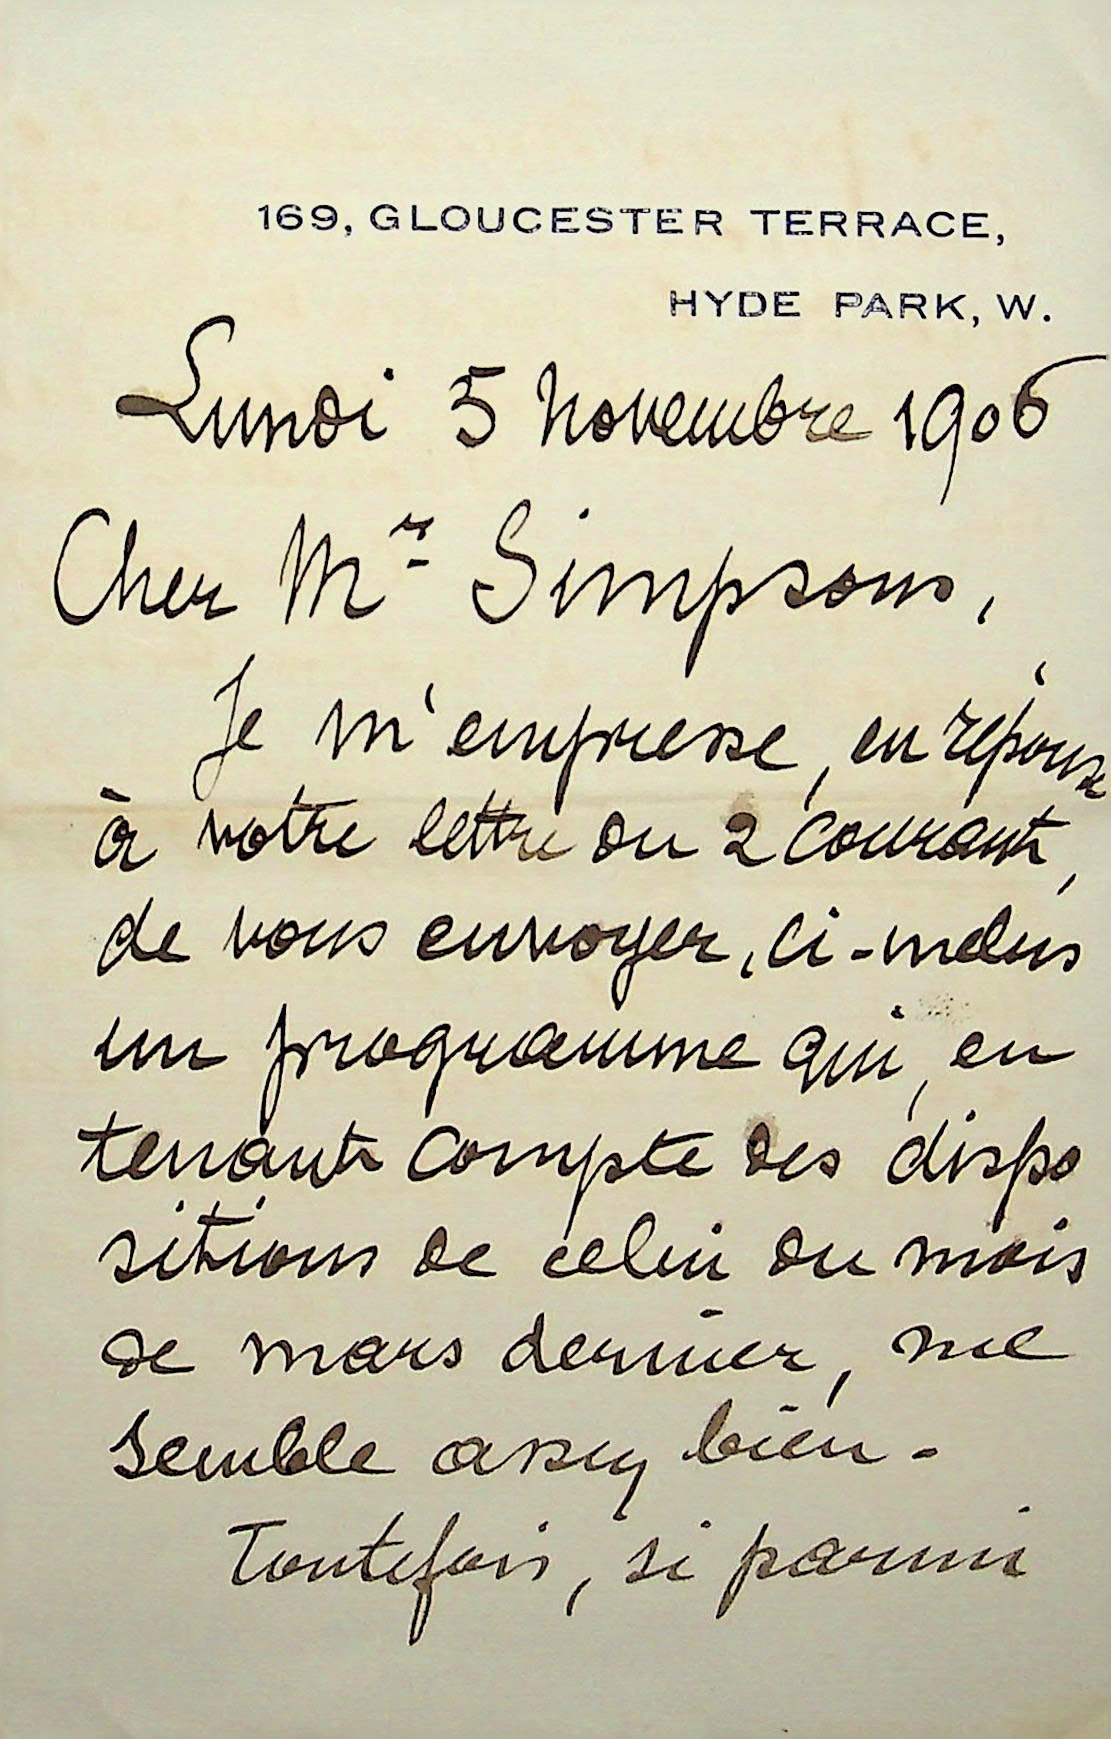 169, GLOUCESTER TERRACE,
HYDE PARK, W.
Lundi 5 Novembre 1906
Cher Mr Simpson,
Je m'empresse, en réponse
à votre lettre du 2 courant,
de vous envoyer, ci-inclus
un programme qui, en
tenant compte des dispo
sitions de celui du mois
de mars dernier, me
semble assez bien -
Toutefois, si parmi